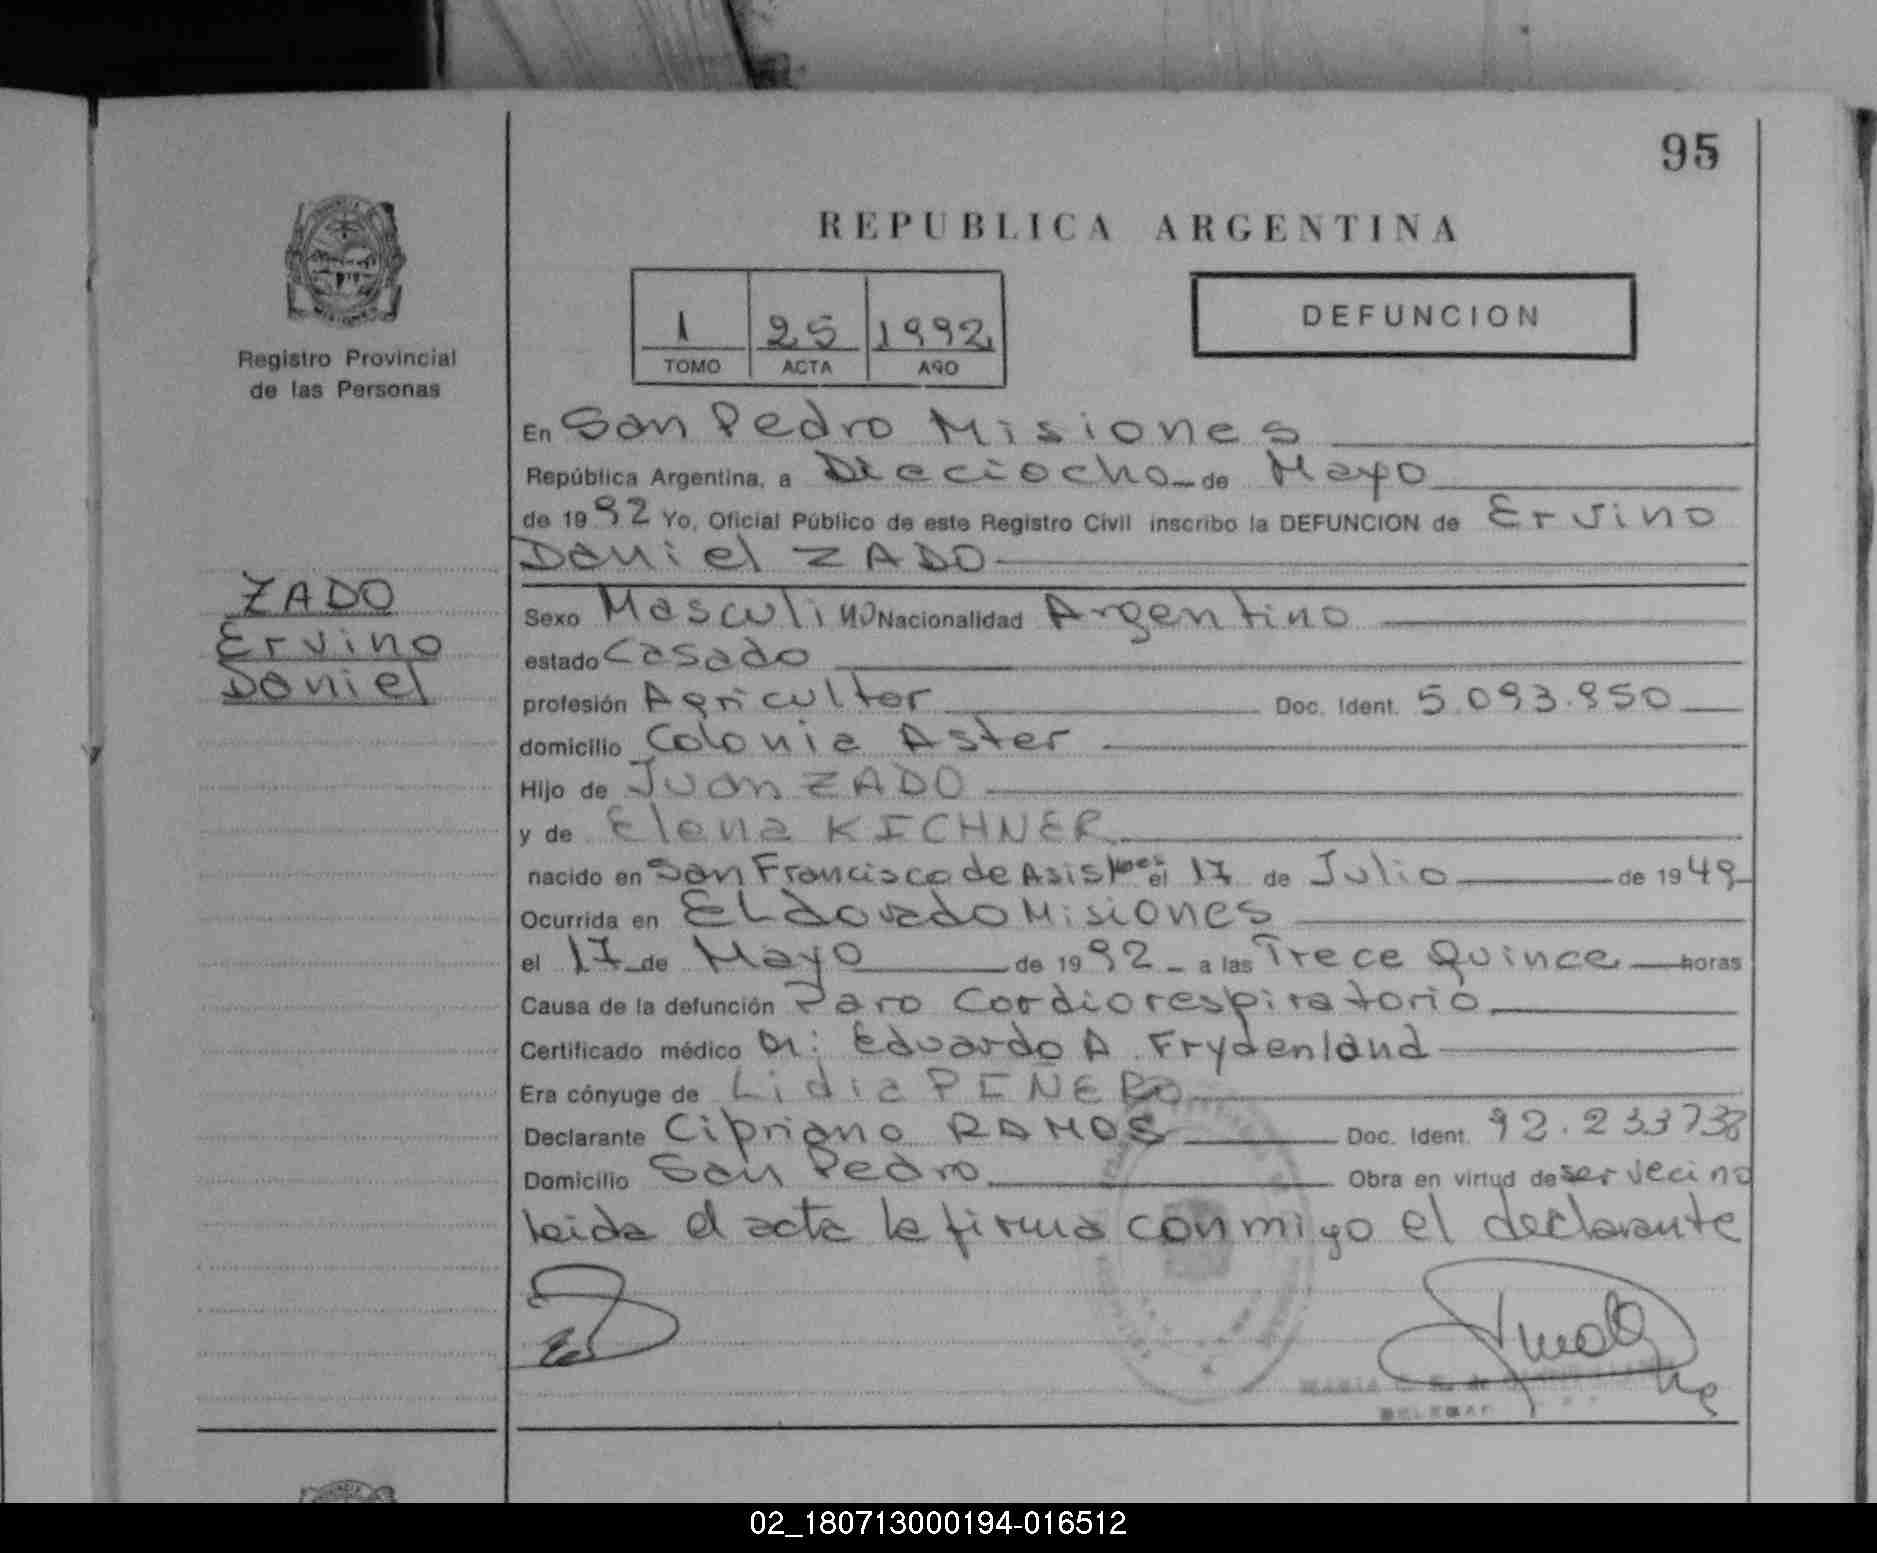 95
REPUBLICA ARGENTINA
Registro Provincial
de las Personas
1 25 1992
TOMO ACTA AÑO
DEFUNCION
En San Pedro Misiones
República Argentina, a Dieciocho de Mayo
de 1992 Yo, Oficial Público de este Registro Civil inscribo la DEFUNCION de Ervino
Daniel ZADO
ZADO
Ervino
Daniel
Sexo Masculino Nacionalidad Argentino
estado Casado
profesión Agricultor Doc. Ident. 5.093.950
domicilio Colonia Aster
Hijo de Juan ZADO
y de Elena KICHNER
nacido en San Francisco de Asis el 17 de Julio de 1949
Ocurrida en ELdorado Misiones
el 17 de Mayo de 1992 a las Trece Quince horas
Causa de la defunción Paro Cardiorespiratorio
Certificado médico Dr: Eduardo A. Frydenland
Era cónyuge de Lidia PIÑERO
Declarante Cipriano RAMOS Doc. Ident. 92.233738
Domicilio San Pedro Obra en virtud de ser vecino
leida el acta la firma conmigo el declarante
02_180713000194-016512